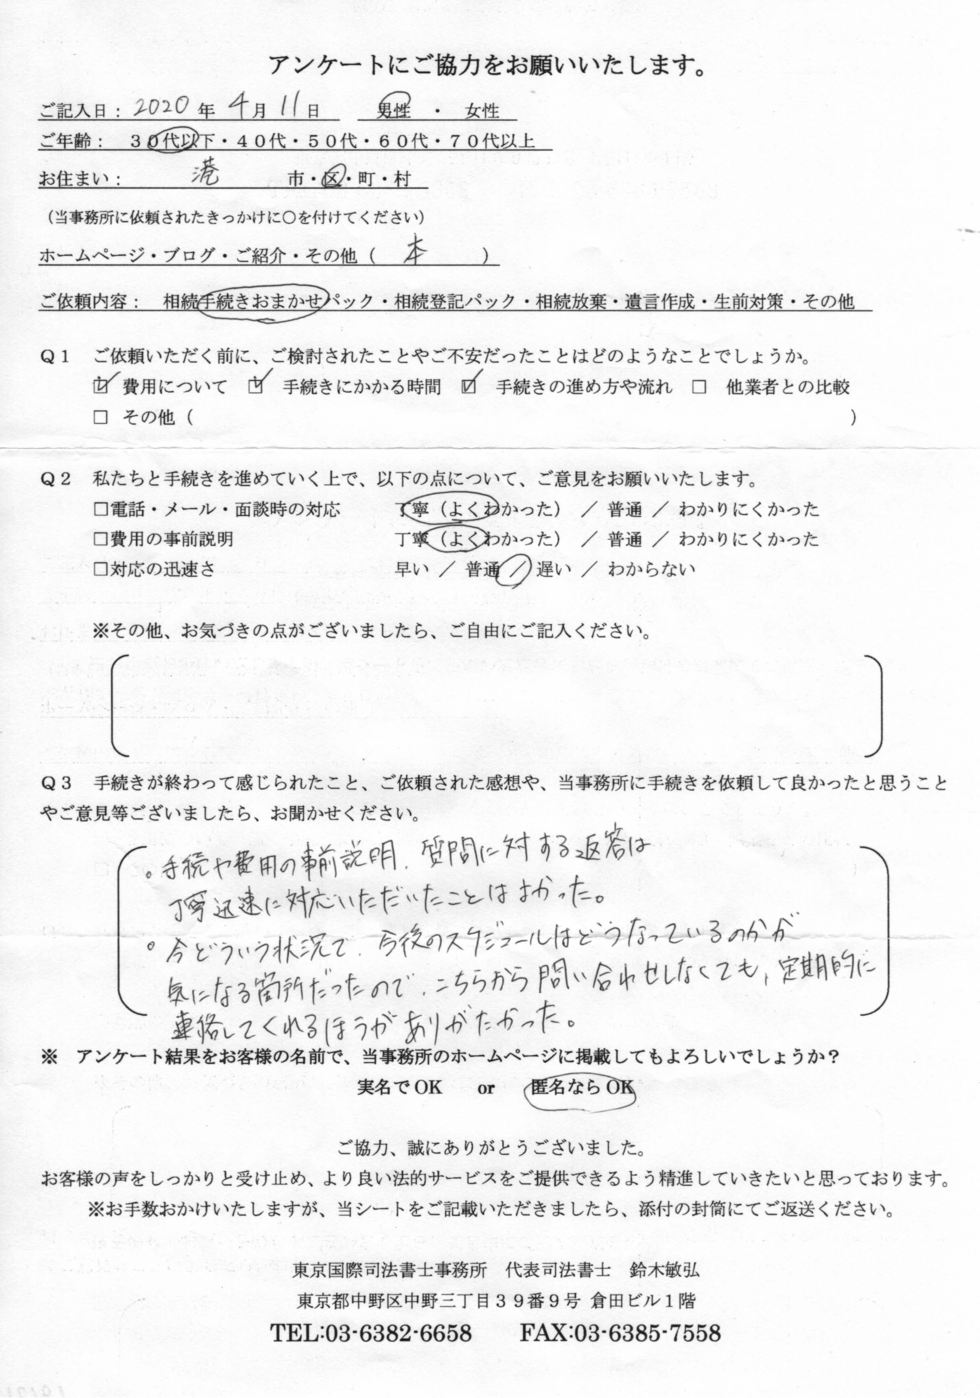 アンケートにご協力をお願いいたします。
ご記入日： 2020 年 4 月 11 日 男性 ・ 女性
ご年齢： 30代以下・40代・50代・60代・70代以上
お住まい： 港 市・区・町・村
（当事務所に依頼されたきっかけに○を付けてください）
ホームページ・ブログ・ご紹介・その他（ 本 ）
ご依頼内容： 相続手続きおまかせパック・相続登記パック・相続放棄・遺言作成・生前対策・その他
Q1 ご依頼いただく前に、ご検討されたことやご不安だったことはどのようなことでしょうか。
☑ 費用について ☑ 手続きにかかる時間 ☑ 手続きの進め方や流れ □ 他業者との比較
□ その他（ ）
Q2 私たちと手続きを進めていく上で、以下の点について、ご意見をお願いいたします。
□電話・メール・面談時の対応 丁寧（よくわかった） ／ 普通 ／ わかりにくかった
□費用の事前説明 丁寧（よくわかった） ／ 普通 ／ わかりにくかった
□対応の迅速さ 早い ／ 普通 ／ 遅い ／ わからない
※その他、お気づきの点がございましたら、ご自由にご記入ください。
Q3 手続きが終わって感じられたこと、ご依頼された感想や、当事務所に手続きを依頼して良かったと思うこと
やご意見等ございましたら、お聞かせください。
。手続や費用の事前説明、質問に対する返答は
丁寧迅速に対応いただいたことはよかった。
。今どういう状況で、今後のスケジュールはどうなっているのかが
気になる箇所だったので、こちらから問い合わせしなくても、定期的に
連絡してくれるほうがありがたかった。
※ アンケート結果をお客様の名前で、当事務所のホームページに掲載してもよろしいでしょうか？
実名でOK or 匿名ならOK
ご協力、誠にありがとうございました。
お客様の声をしっかりと受け止め、より良い法的サービスをご提供できるよう精進していきたいと思っております。
※お手数おかけいたしますが、当シートをご記載いただきましたら、添付の封筒にてご返送ください。
東京国際司法書士事務所 代表司法書士 鈴木敏弘
東京都中野区中野三丁目39番9号 倉田ビル1階
TEL:03-6382-6658 FAX:03-6385-7558